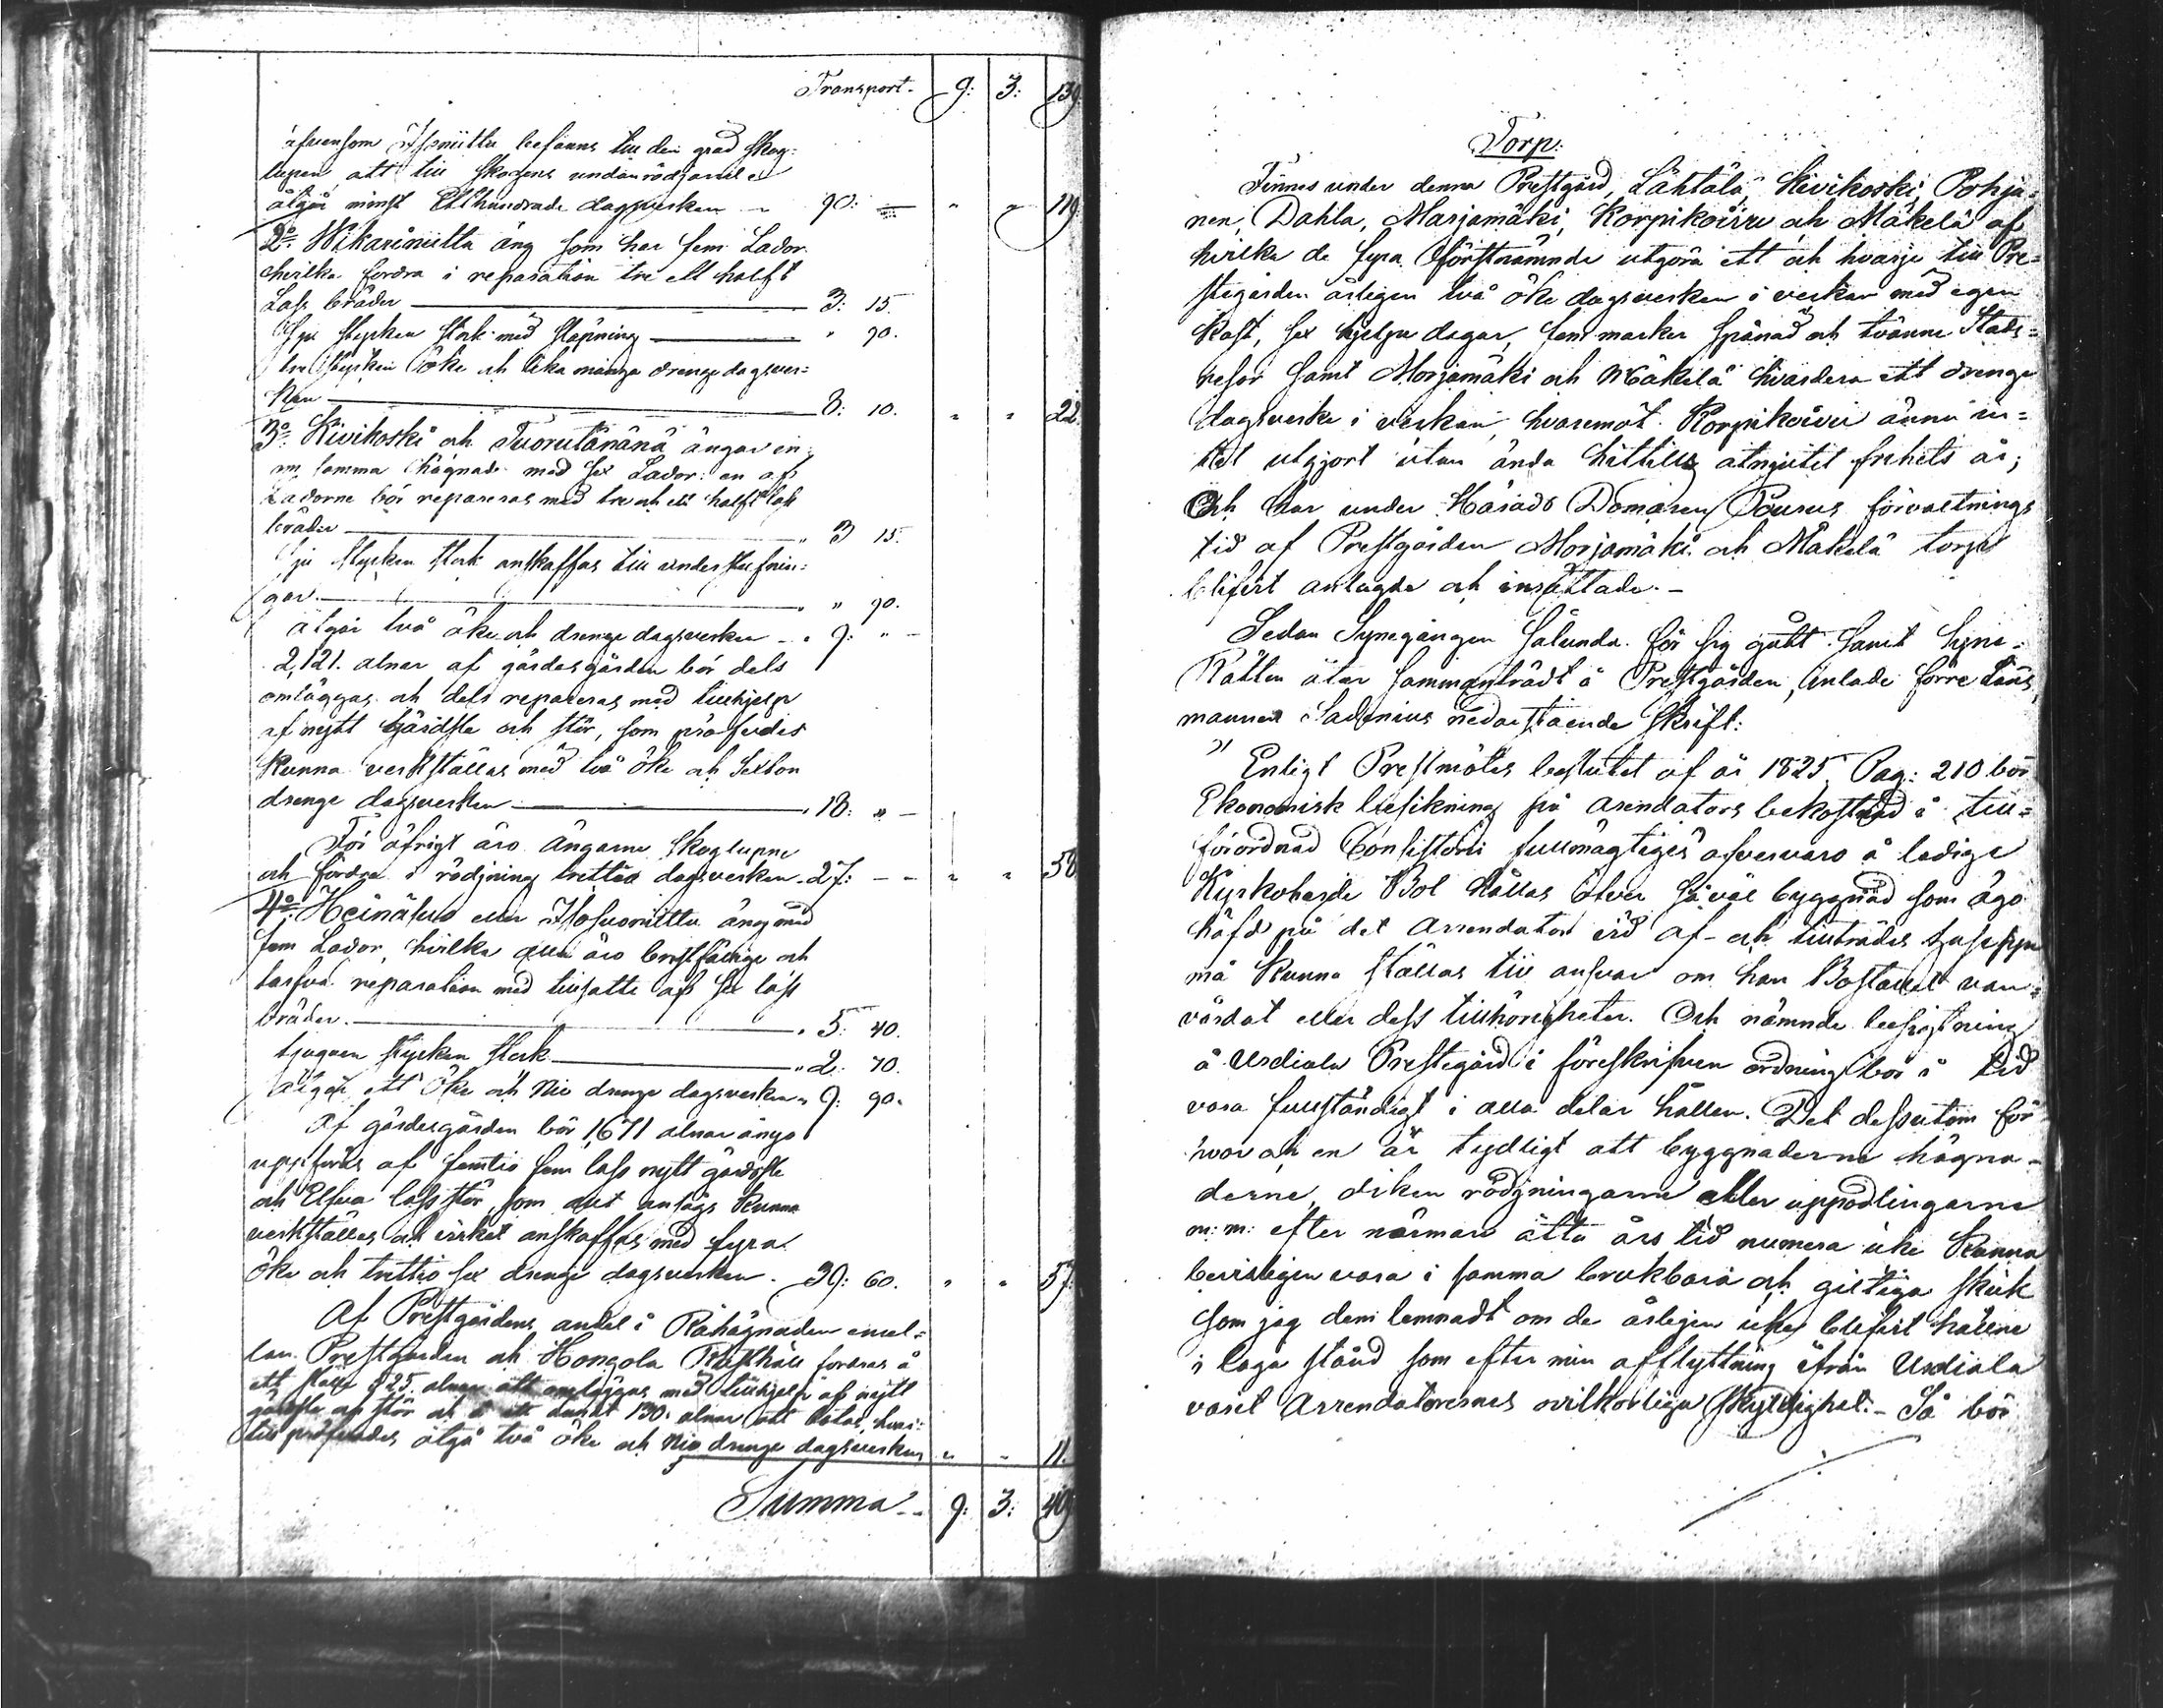 Transport. 9: 3: 139.
äfvensom Isoniittu befanns till den grad skog-
lupen, att till skogens undanrödjande
åtgår minst Etthundrade dagsverken 90: — " " 119.
2o. Wikariniittu äng som har fem Lador
hvilka fordra i reparation tre ett halft
Lass bräder — 3: 15.
Sju stycken stock med släpning — " 70.
tre stycken öke och lika många drenge dagsver-
ken — 8: 10. " " 22.
3o. Kivikoski och Tuorutänänä ängar in-
om samma hägnad med sex Lador: en af
Ladorne bör repareras med tre och ett halft lass
bräder — " 3 15.
Sju stycken stock anskaffas till understufnin-
gar. — " " 70.
åtgår två öke och drenge dagsverken " 9: " —
2,121. alnar af gärdesgården bör dels
omläggas och dels repareras med tillhjelp
af nytt gärdsle och stör, som pröfvades
kunna verkställas med två öke och Sexton
drenge dagsverken — " 18: " —
För öfrigt äro ängarne skoglupne
och fordra i rödjning trettio dagsverken. 27: — — " " 58
4o. Heinälus eller Isosuoniittu äng med
fem Lador, hvilka alla äro bristfällige och
tarfva reparation med tillsatts af sex lass
bräder. — " 5: 40.
tjugoen stycken stock — " 2: 70.
åtgår ett öke och Nio drenge dagsverken " 9: 90.
Af gärdesgården bör 1,671 alnar ånyo
uppföras af femtio fem lass nytt gärdsle
och Elfva lass stör, som det ansågs kunna
verkställas och virket anskaffas med fyra
öke och trettio sex drenge dagsverken. 39: 60. " " 57.
Af Prestgårdens andel i Råhägnaden emel-
lan Prestgården och Hongola fordras å
ett ställe 825. alnar att omläggas med tillhjelp af nytt
gärdsle och stör och å ett annat 130. alnar att botas, hvar-
till pröfvades åtgå två öke och Nio drenge dagsverken " " 11.
Summa — 9: 3: 409
Torp:
Finnes under denna Prestgård, Lähtälä, Kivikoski, Pohja-
nen, Dahla, Marjamäki, Korpikoivu och Mäkelä af
hvilka de fyra förstnämnde utgöra ett och hvarje till Pre-
stegården årligen två öke dagsverken i veckan med egen
kost, sex hjelpe dagar, fem marker spånad och tvänne Stads-
resor samt Morjamäki och Mäkelä hvardera ett drenge
dagsverke i veckan, hvaremot Korpikoivu ännu in-
tet utgjort utan ända hittills åtnjutit frihets år;
Och har under Härads Domaren Pourus förvaltnings
tid af Prestgården Morjamäki och Mäkelä torpe
blifvit anlagde och insattade. —
Sedan Synegången sålunda för sig gått samt Syne-
Rätten åter sammanträdt å Prestgården, inlade förre Läns-
mannen Sadenius nedanstående skrift:
" Enligt Prestmötes beslutet af år 1825 Pag: 210 bör
Ekonomisk besiktning på arendators bekostnad i till-
förordnad Consistorii fullmägtiges öfvervaro å ledige
Kyrkoherde Bol hållas öfver så väl byggnad som ägo
häfd på det Arrendator vid af- och tillträdes Husesyn
må kunna ställas till ansvar om han Bostället van-
vårdat eller dess tillhörigheter. Och nämnde besigtning
å Usdiala Prestegård i föreskrifven ordning bör i tid
vara fullständigt i alla delar hållen. Det dessutom för
hvar och en är tydligt att byggnaderne hägna-
derne, diken rödjningarne eller uppodlingarne
m: m: efter närmare åtta års tid numera icke kunna
bevisligen vara i samma brukbara och giltiga skick
som jag dem lemnadt om de årligen icke blifvit hållne
i laga stånd som efter min afflyttning ifrån Usdiala
varit Arrendatorernes ovilkorliga skyldighet. — Så bör